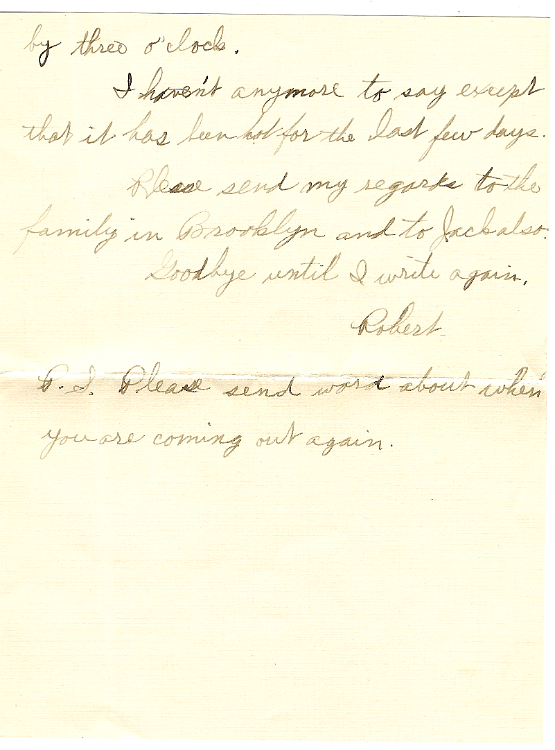 by three o'clock.
I haven't anymore to say except
that it has been hot for the last few days.
Please send my regards to the
family in Brooklyn and to Jack also.
Goodbye until I write again.
Robert
P.S. Please send word about when
you are coming out again.